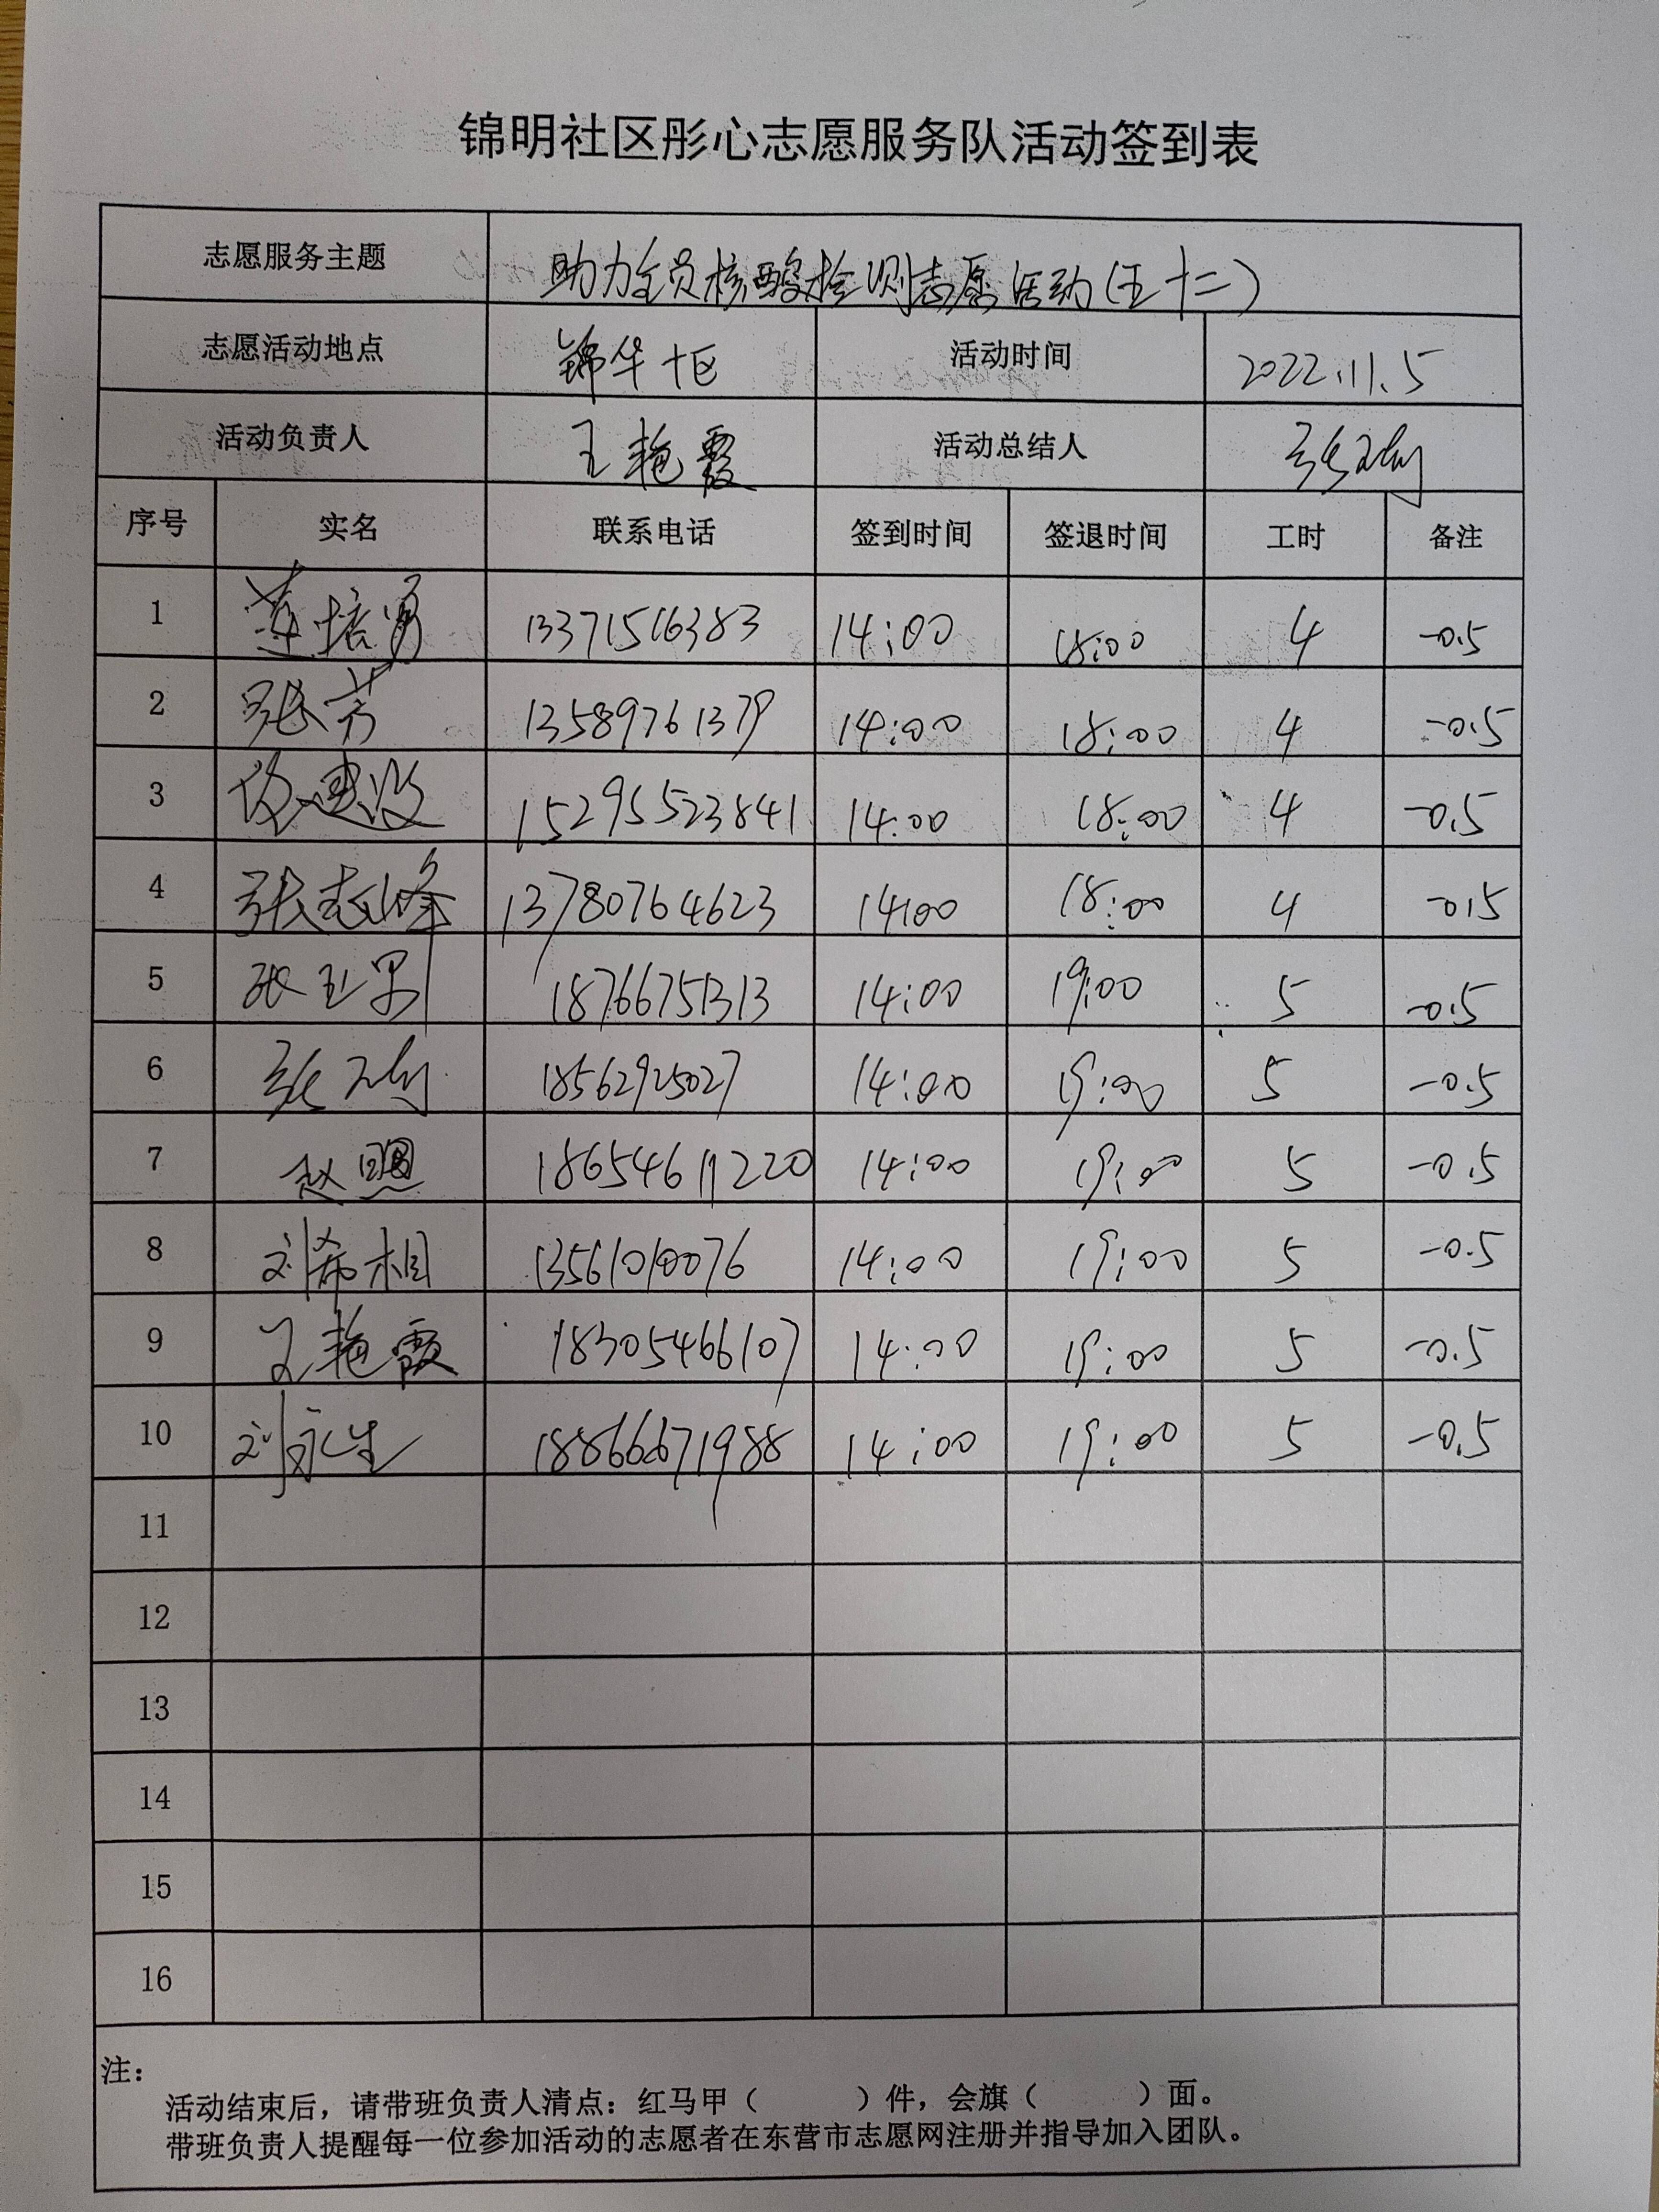 锦明社区彤心志愿服务队活动签到表
志愿服务主题 助力全员核酸检测志愿活动(五十二)
志愿活动地点 锦华十区 活动时间 2022.11.5
活动负责人 王艳霞 活动总结人 张
序号 实名 联系电话 签到时间 签退时间 工时 备注
1 培勇 13371516383 14:00 18:00 4 -0.5
2 张芳 13589761379 14:00 18:00 4 -0.5
3 15295523841 14:00 18:00 4 -0.5
4 张志峰 13780764623 14:00 18:00 4 -0.5
5 张玉果 18766751313 14:00 19:00 5 -0.5
6 张 14:00 19:00 5 -0.5
7 赵照 18654611220 14:00 19:00 5 -0.5
8 刘希相 13561010076 14:00 19:00 5 -0.5
9 王艳霞 18305466107 14:00 19:00 5 -0.5
10 刘永生 18866671988 14:00 19:00 5 -0.5
11
12
13
14
15
16
注：
活动结束后，请带班负责人清点：红马甲（ ）件，会旗（ ）面。
带班负责人提醒每一位参加活动的志愿者在东营市志愿网注册并指导加入团队。